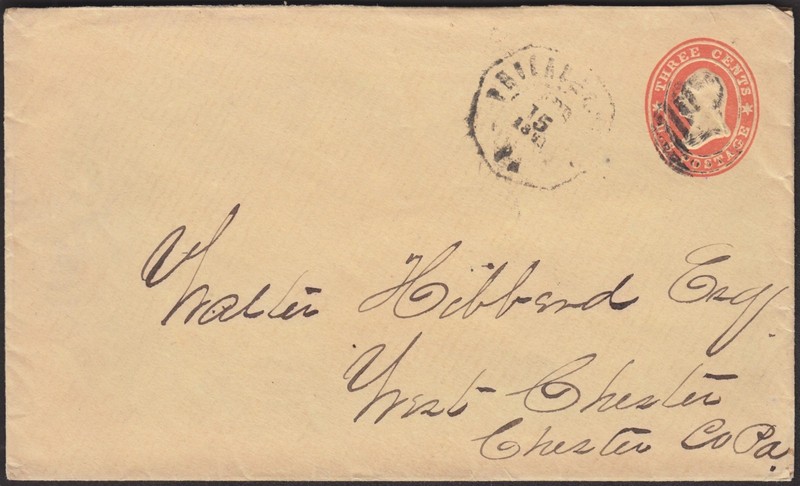 THREE CENTS
POSTAGE
15
Walter Hibberd Esq
West Chester
Chester Co Pa